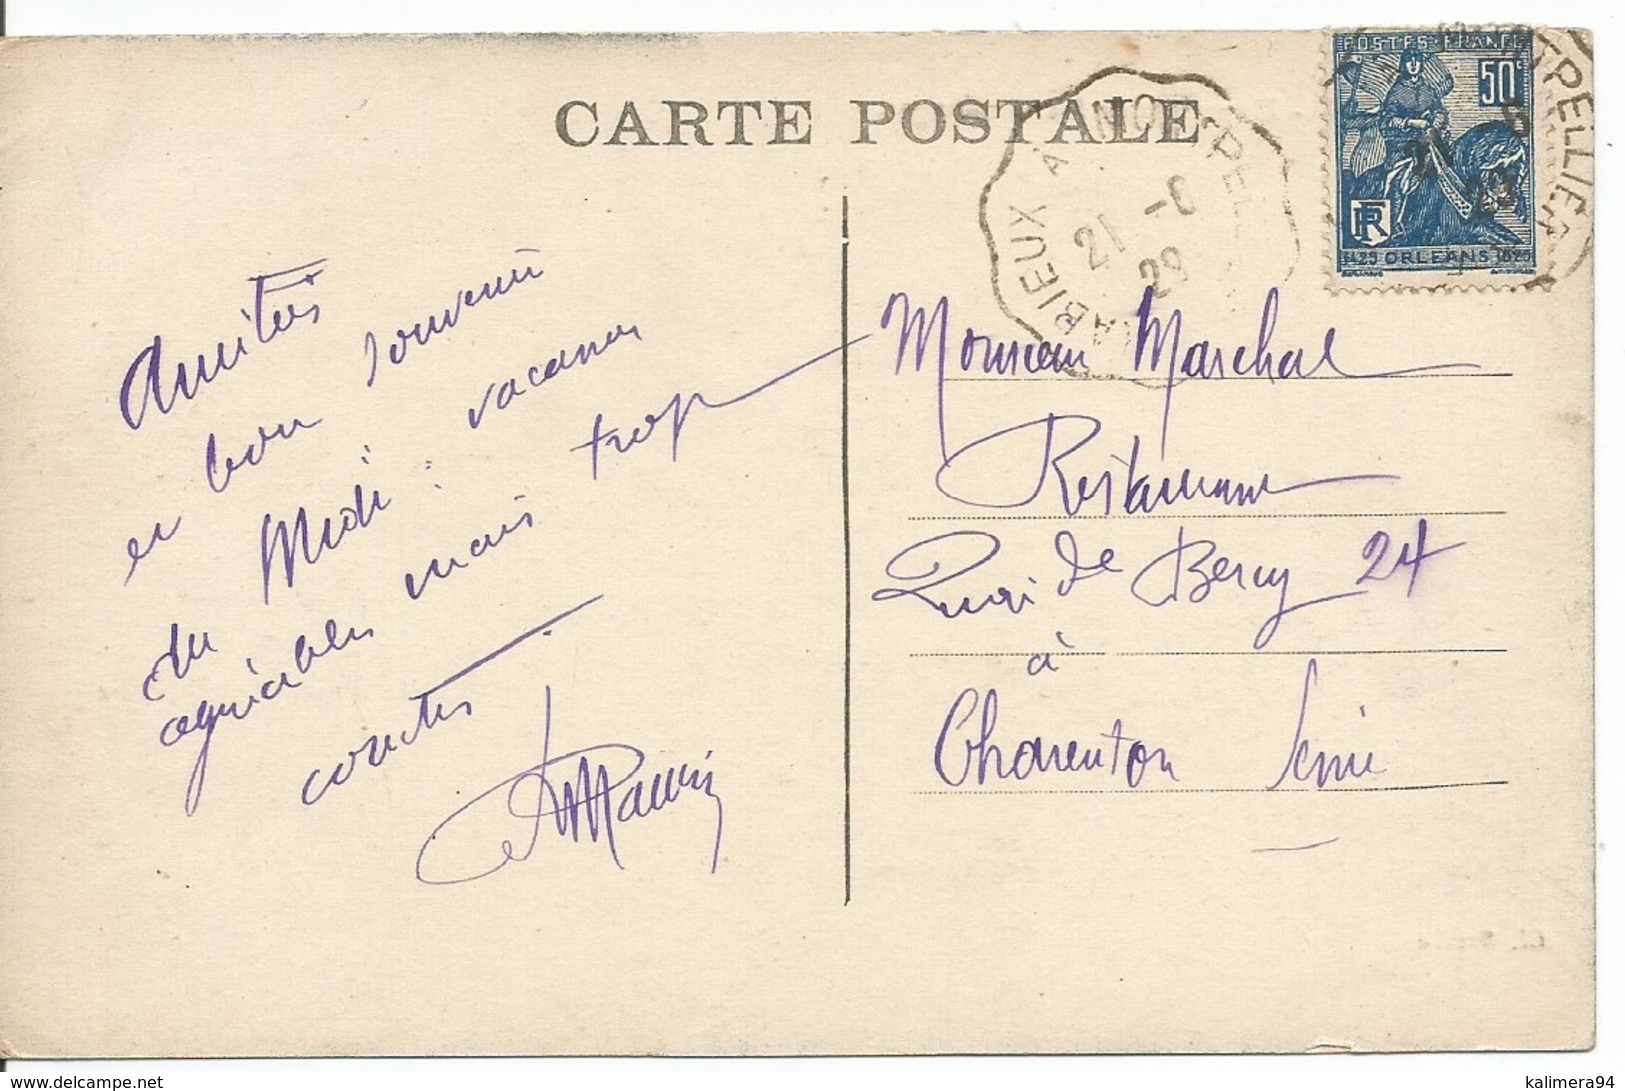 CARTE POSTALE
POSTES FRANCE
50c
RF
1429 ORLEANS 1929
RABIEUX A MONTPE
21 -6
29
MONTPELLIER
21 6
Amitiés
et bon souvenir
du Midi : vacances
agréables mais trop
courtes.
Monsieur Marchal
Restaurant
Quai de Bercy 24
à
Charenton Seine
kalimera94
www.delcampe.net